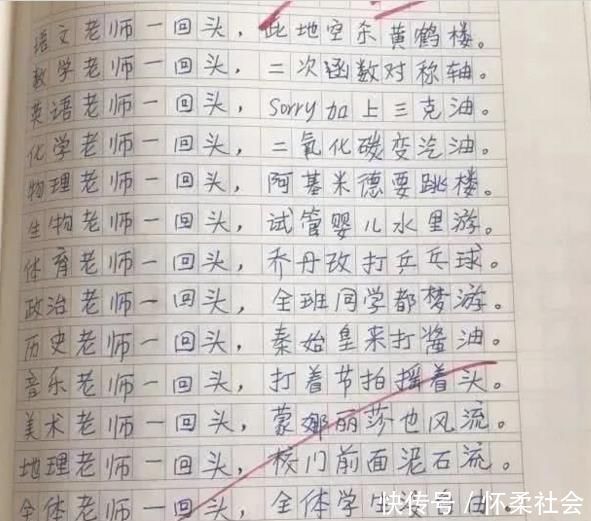 语文老师一回头，此地空余黄鹤楼。
数学老师一回头，二次函数对称轴。
英语老师一回头，Sorry加上三克油。
化学老师一回头，二氧化碳变汽油。
物理老师一回头，阿基米德要跳楼。
生物老师一回头，试管婴儿水里游。
体育老师一回头，乔丹改打乒乓球。
政治老师一回头，全班同学都梦游。
历史老师一回头，秦始皇来打酱油。
音乐老师一回头，打着节拍摇着头。
美术老师一回头，蒙娜丽莎也风流。
地理老师一回头，校门前面泥石流。
全体老师一回头，全体学生 由.
快传号／怀柔社会